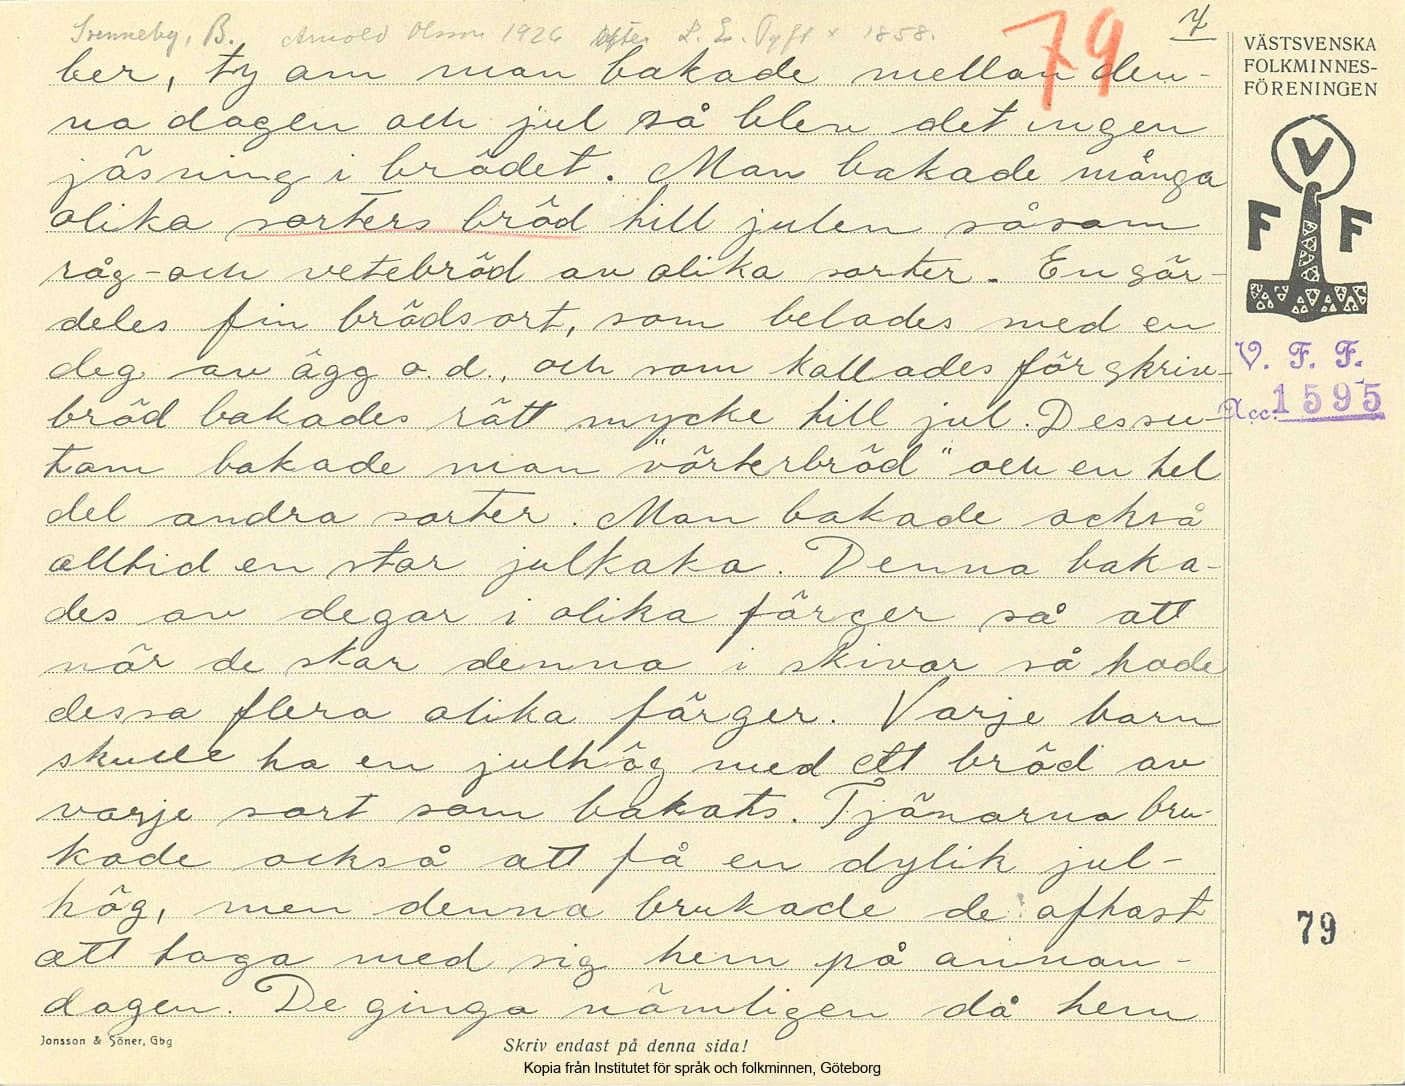 Svenneby, B. Arnold Olsson 1926 efter L. E. Tyft * 1858.
79
7
ber, ty om man bakade mellan den-
na dagen och jul så blev det ingen
jäsning i brödet. Man bakade många
olika sorters bröd till julen såsom
råg- och vetebröd av olika sorter. En gör-
deles fin brödsort, som belades med en
deg av ägg o.d., och som kallades för skriv-
bröd bakades rätt mycke till jul. Dessu-
tom bakade man "vörterbröd" och en hel
del andra sorter. Man bakade också
alltid en stor julkaka. Denna baka-
des av degar i olika färger så att
när de skar denna i skivor så hade
dessa flera olika färger. Varje barn
skulle ha en julhög med ett bröd av
varje sort som bakats. Tjänarna bru-
kade också att få en dylik jul-
hög, men denna brukade de oftast
att taga med sig hem på annan-
dagen. De gingo nämligen då hem
VÄSTSVENSKA
FOLKMINNES-
FÖRENINGEN
V
F F
V. F. F.
Acc. 1595
79
Jonsson & Söner, Gbg
Skriv endast på denna sida!
Kopia från Institutet för språk och folkminnen, Göteborg